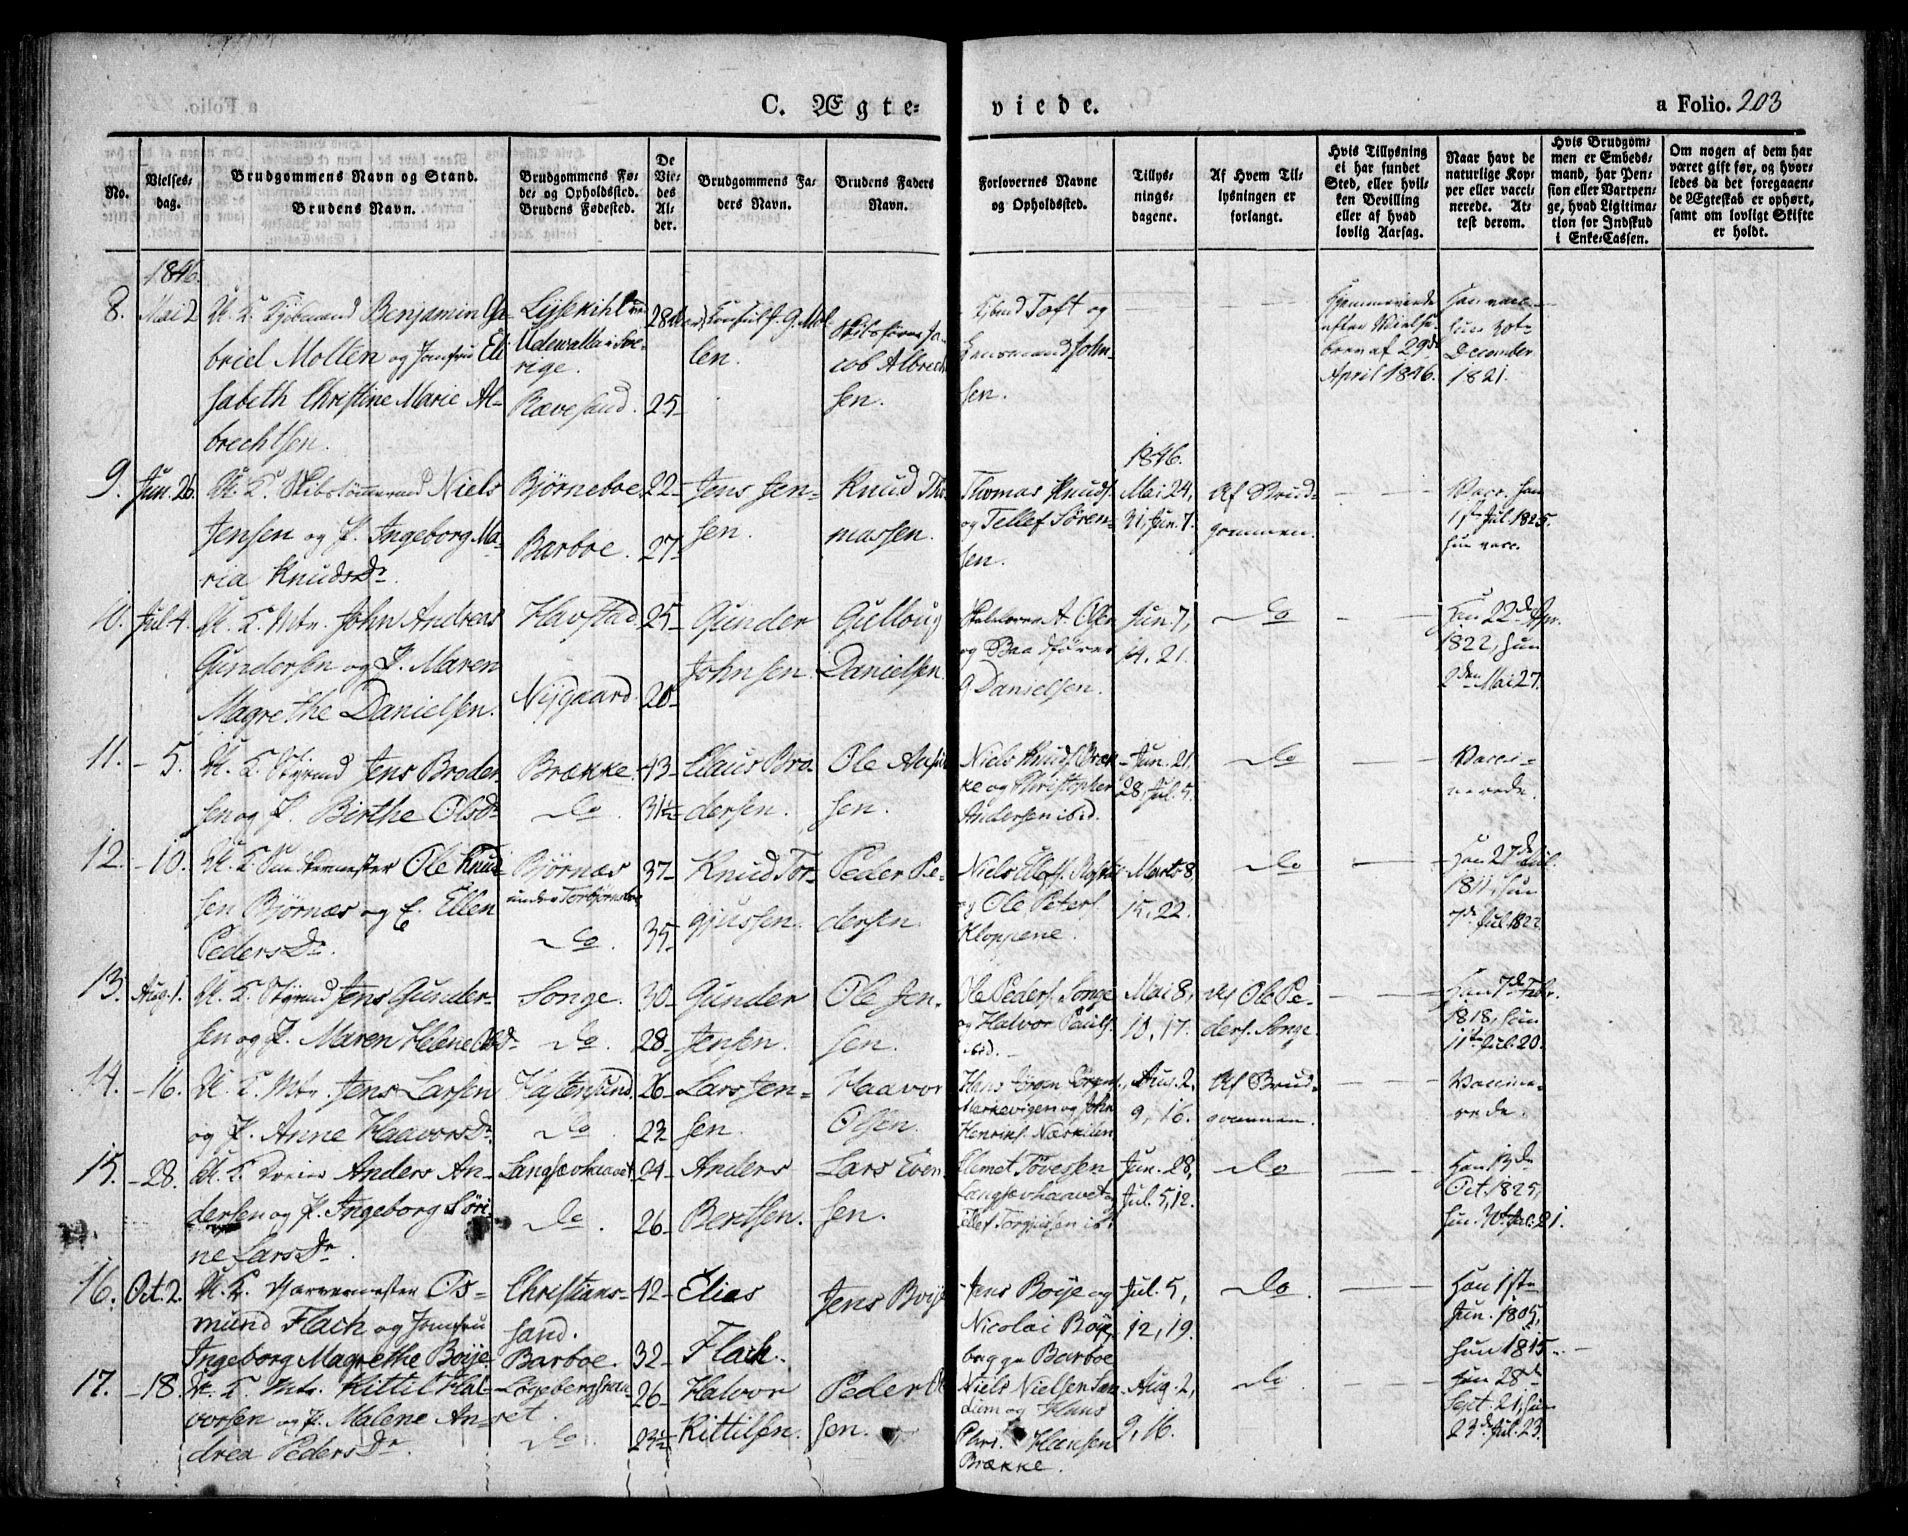 C. Ægte-
viede.
a Folio. 203
No.
Vielses-
dag.
Brudgommens Navn og Stand.
Brudens Navn.
Brudgommens Fø-
de- og Opholdssted.
Brudens Fødested.
De
Vie-
des
Al-
der.
Brudgommens Fa-
ders Navn.
Brudens Faders
Navn.
Forlovernes Navne
og Opholdssted.
Tillys-
nings-
dagene.
Af Hvem Til-
lysningen er
forlangt.
Hvis Tillysning
ei har fundet
Sted, eller hvil-
ken Bevilling
eller af hvad
lovlig Aarsag.
Naar havt de
naturlige Kop-
per eller vacci-
nerede. At-
test derom.
Hvis Brudgom-
men er Embeds-
mand, har Pen-
sion eller Vartpen-
ge, hvad Ligitima-
tion for Indskud
i Enke-Cassen.
Om nogen af dem har
været gift før, og hvor-
ledes da det foregaaen-
de Ægteskab er ophørt,
samt om lovligt Skifte
er holdt.
1846.
8. Mai 2 U. K. Benjamin Ga-
briel Molten og Jomfru Eli
sabeth Christine Marie Al-
brechtsen.
Lysekihl
Udewalla i Sve-
rige.
Rævesand.
28
25
Consul J. G. Mol
len.
Skibsfører Ja-
cob Albrecht
sen.
Toft og
John-
sen.
efter
brev af 29de
April 1846.
December
1821.
1846.
9. Jun. 26. U. K. Niels
Jensen og P. Ingeborg Ma-
ria Knudsdr
Bjørneboe.
Barboe.
22
27
Jens Jen-
sen.
Knud Tho-
massen.
Thomas Knuds.
og Tellef Søren-
sen.
Mai 24,
31, Jun. 7.
Af Brud-
gommen.
Vacc. han
Jul. 1825.
hun vacc.
10. Jul 4. U. K. Mtr. John Andreas
Gundersen og P. Maren
Magrethe Danielsen.
Havstad
Nysgaard
25
20
Gunder
Johnsen
Gulloug
Danielsen.
A. Olsen
og Baadfører
G Danielsen.
Jun 7,
14, 21.
Do
Han 22de Apr.
1822, hun
2den Mai 27.
11. - 5. U. K. Styrmd Jens Broder
sen og P. Birthe Olsdr
Brække.
Do
43
31½
Claus Bro
dersen.
Ole
sen.
Niels Knuds. Bræk
ke og Christopher
Andersen ibid.
Jun. 21.
28, Jul. 5.
Do
Vacci-
nerede.
12. - 10. U. K. Ole Knud
sen Bjørnæs og E. Ellen
Pedersdr
Bjørnæs
under Torbjørnsboe
Do
37
35
Knud Tor-
gjussen.
Peder Pe-
dersen.
Niels
og Ole Peters.
Kloppene.
Marts 8,
15, 22.
Do
Han 27de Jul.
1811, hun
7de Jul. 1822
13. Aug. 1. U. K. Styrmd Jens Gunder-
sen og P. Maren Helene Olsdr
Songe.
Do
30
28
Gunder
Jensen.
Ole Jen-
sen.
Ole Peders. Songe
og Halvor Pauls.
ibid.
Mai 8,
10, 17.
Af Ole Pe-
ders. Songe.
Han 7de Febr.
1818, hun
11te Jul. 20.
14. - 16. U. K. Mtr. Jens Larsen
og P. Anne Haavorsdr
Hastensund.
Do
26
23
Lars Jen-
sen.
Haavor
Olsen.
Hans Jörgen Jörgens.
Markevigen og John
Henriks. Næskilen
Aug. 2.
9, 16.
Af Brud-
gommen.
Vaccine-
rede.
15. - 28. U. K. Anders An-
dersen og P. Ingeborg Söri-
ne Larsdr
Langsævhaavet
Do
24
26
Anders
Bentsen.
Lars Even
sen.
Clemet Tovessen
Langsævhaavet og
Ellef Torgjussen ibd.
Jun. 28,
Jul. 5, 12.
Do
Han 13de
Oct. 1825,
hun 30te Jul. 21.
16. Oct. 2. U. K. Os-
mund Flach og Jomfru
Ingeborg Magrethe Boije
Christians-
sand.
Barboe.
42
32
Elias
Flach.
Jens Boije
Jens Boije og
Nicolai Boije
begge Barboe
Jul. 5,
12, 19.
Do
Han 1ste
Jun. 1805,
hun 1815
17. - 18. U. K. Mtr. Kittil Hal-
vorsen og P. Malene An-
drea Pedersdr
Do
26
23½
Halvor
Kittilsen.
Peder
sen.
Niels Nielsen
og Hans
Chrs. Hansen
Brække.
Aug. 2,
9, 16.
Do
Han 28de
Sept. 21, hun
23de Jul. 23.